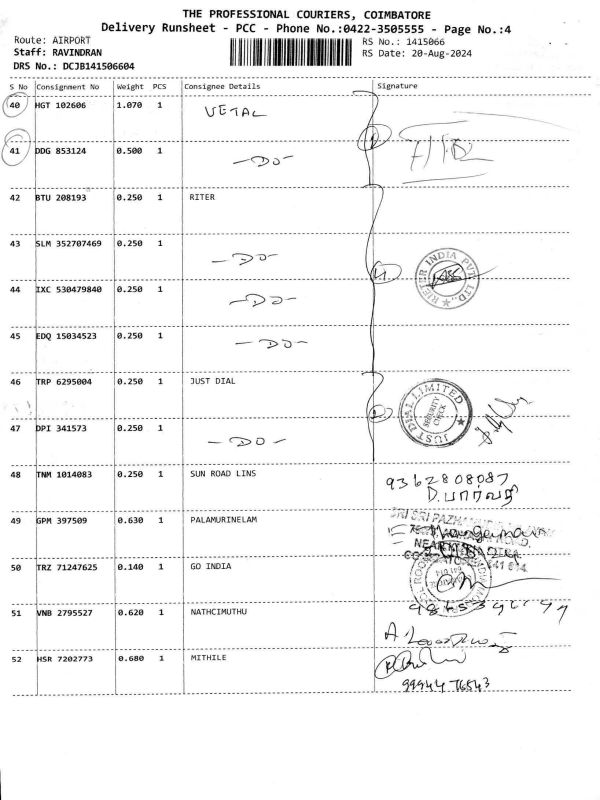 THE PROFESSIONAL COURIERS, COIMBATORE
Delivery Runsheet - PCC - Phone No.:0422-3505555 - Page No.:4
Route: AIRPORT RS No.: 1415066
Staff: RAVINDRAN RS Date: 20-Aug-2024
DRS No.: DCJB141506604
S No Consignment No Weight PCS Consignee Details Signature
40 HGT 102606 1.070 1 VETAL
41 DDG 853124 0.500 1 -DO-
42 BTU 208193 0.250 1 RITER
43 SLM 352707469 0.250 1 -DO-
RIETER INDIA PVT. LTD.
44 IXC 530479840 0.250 1 -DO-
45 EDQ 15034523 0.250 1 -DO-
46 TRP 6295004 0.250 1 JUST DIAL
JUST DIAL LIMITED
SECURITY CHECK
47 DPI 341573 0.250 1 -DO-
48 TNM 1014083 0.250 1 SUN ROAD LINS 9362808087
D. பார்வதி
49 GPM 397509 0.630 1 PALAMURINELAM
SRI SRI
NEAR
50 TRZ 71247625 0.140 1 GO INDIA
51 VNB 2795527 0.620 1 NATHCIMUTHU
52 HSR 7202773 0.680 1 MITHILE
99944 76543